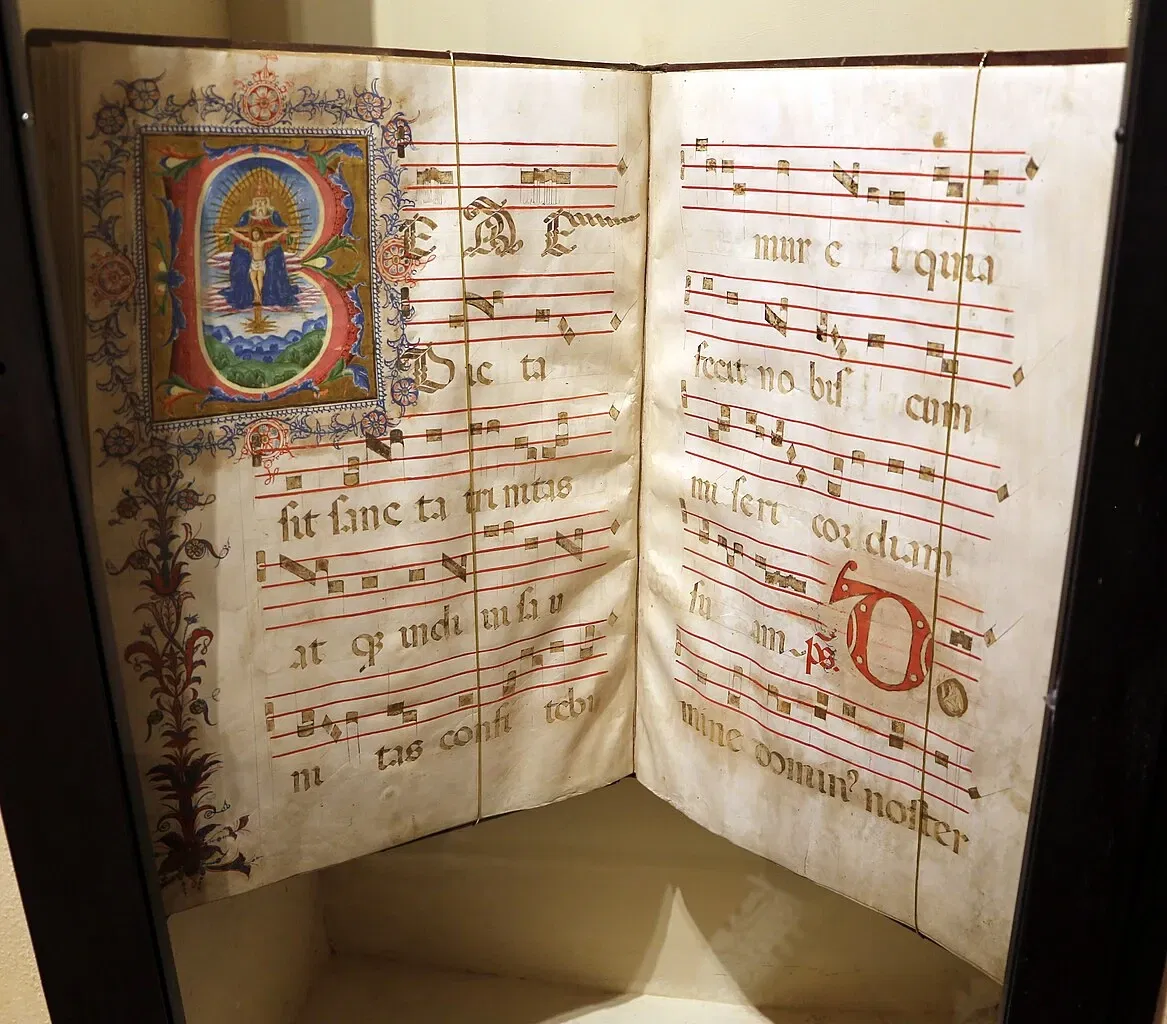 B E N E
Dic ta
sit sanc ta tri nitas
at qꝫ indi ui sa u
ni tas confi tebi
mur e i quia
fecit no bis cum
mi seri cor diam
su am p̄s. D o
mine dominꝰ noster